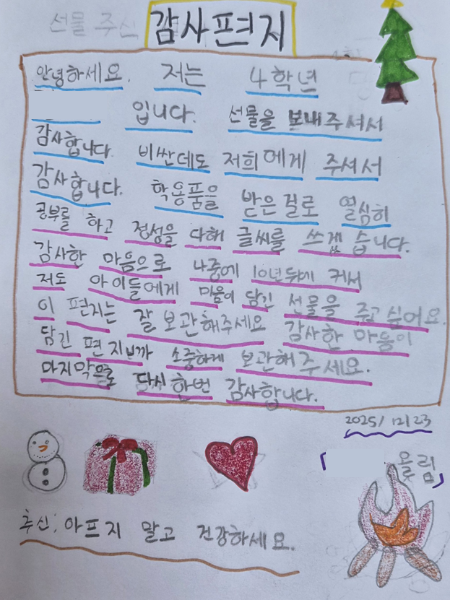 감사편지
안녕하세요. 저는 4학년
입니다. 선물을 보내주셔서
감사합니다. 비싼데도 저희에게 주셔서
감사합니다. 학용품을 받은걸로 열심히
공부를 하고 정성을 다해 글씨를 쓰겠습니다.
감사한 마음으로 나중에 10년뒤에 커서
저도 아이들에게 마음이 담긴 선물을 주고싶어요.
이 편지는 잘 보관해주세요 감사한 마음이
담긴 편지니까 소중하게 보관해주세요.
마지막으로 다시한번 감사합니다.
2025/12/23
올림
추신: 아프지 말고 건강하세요.